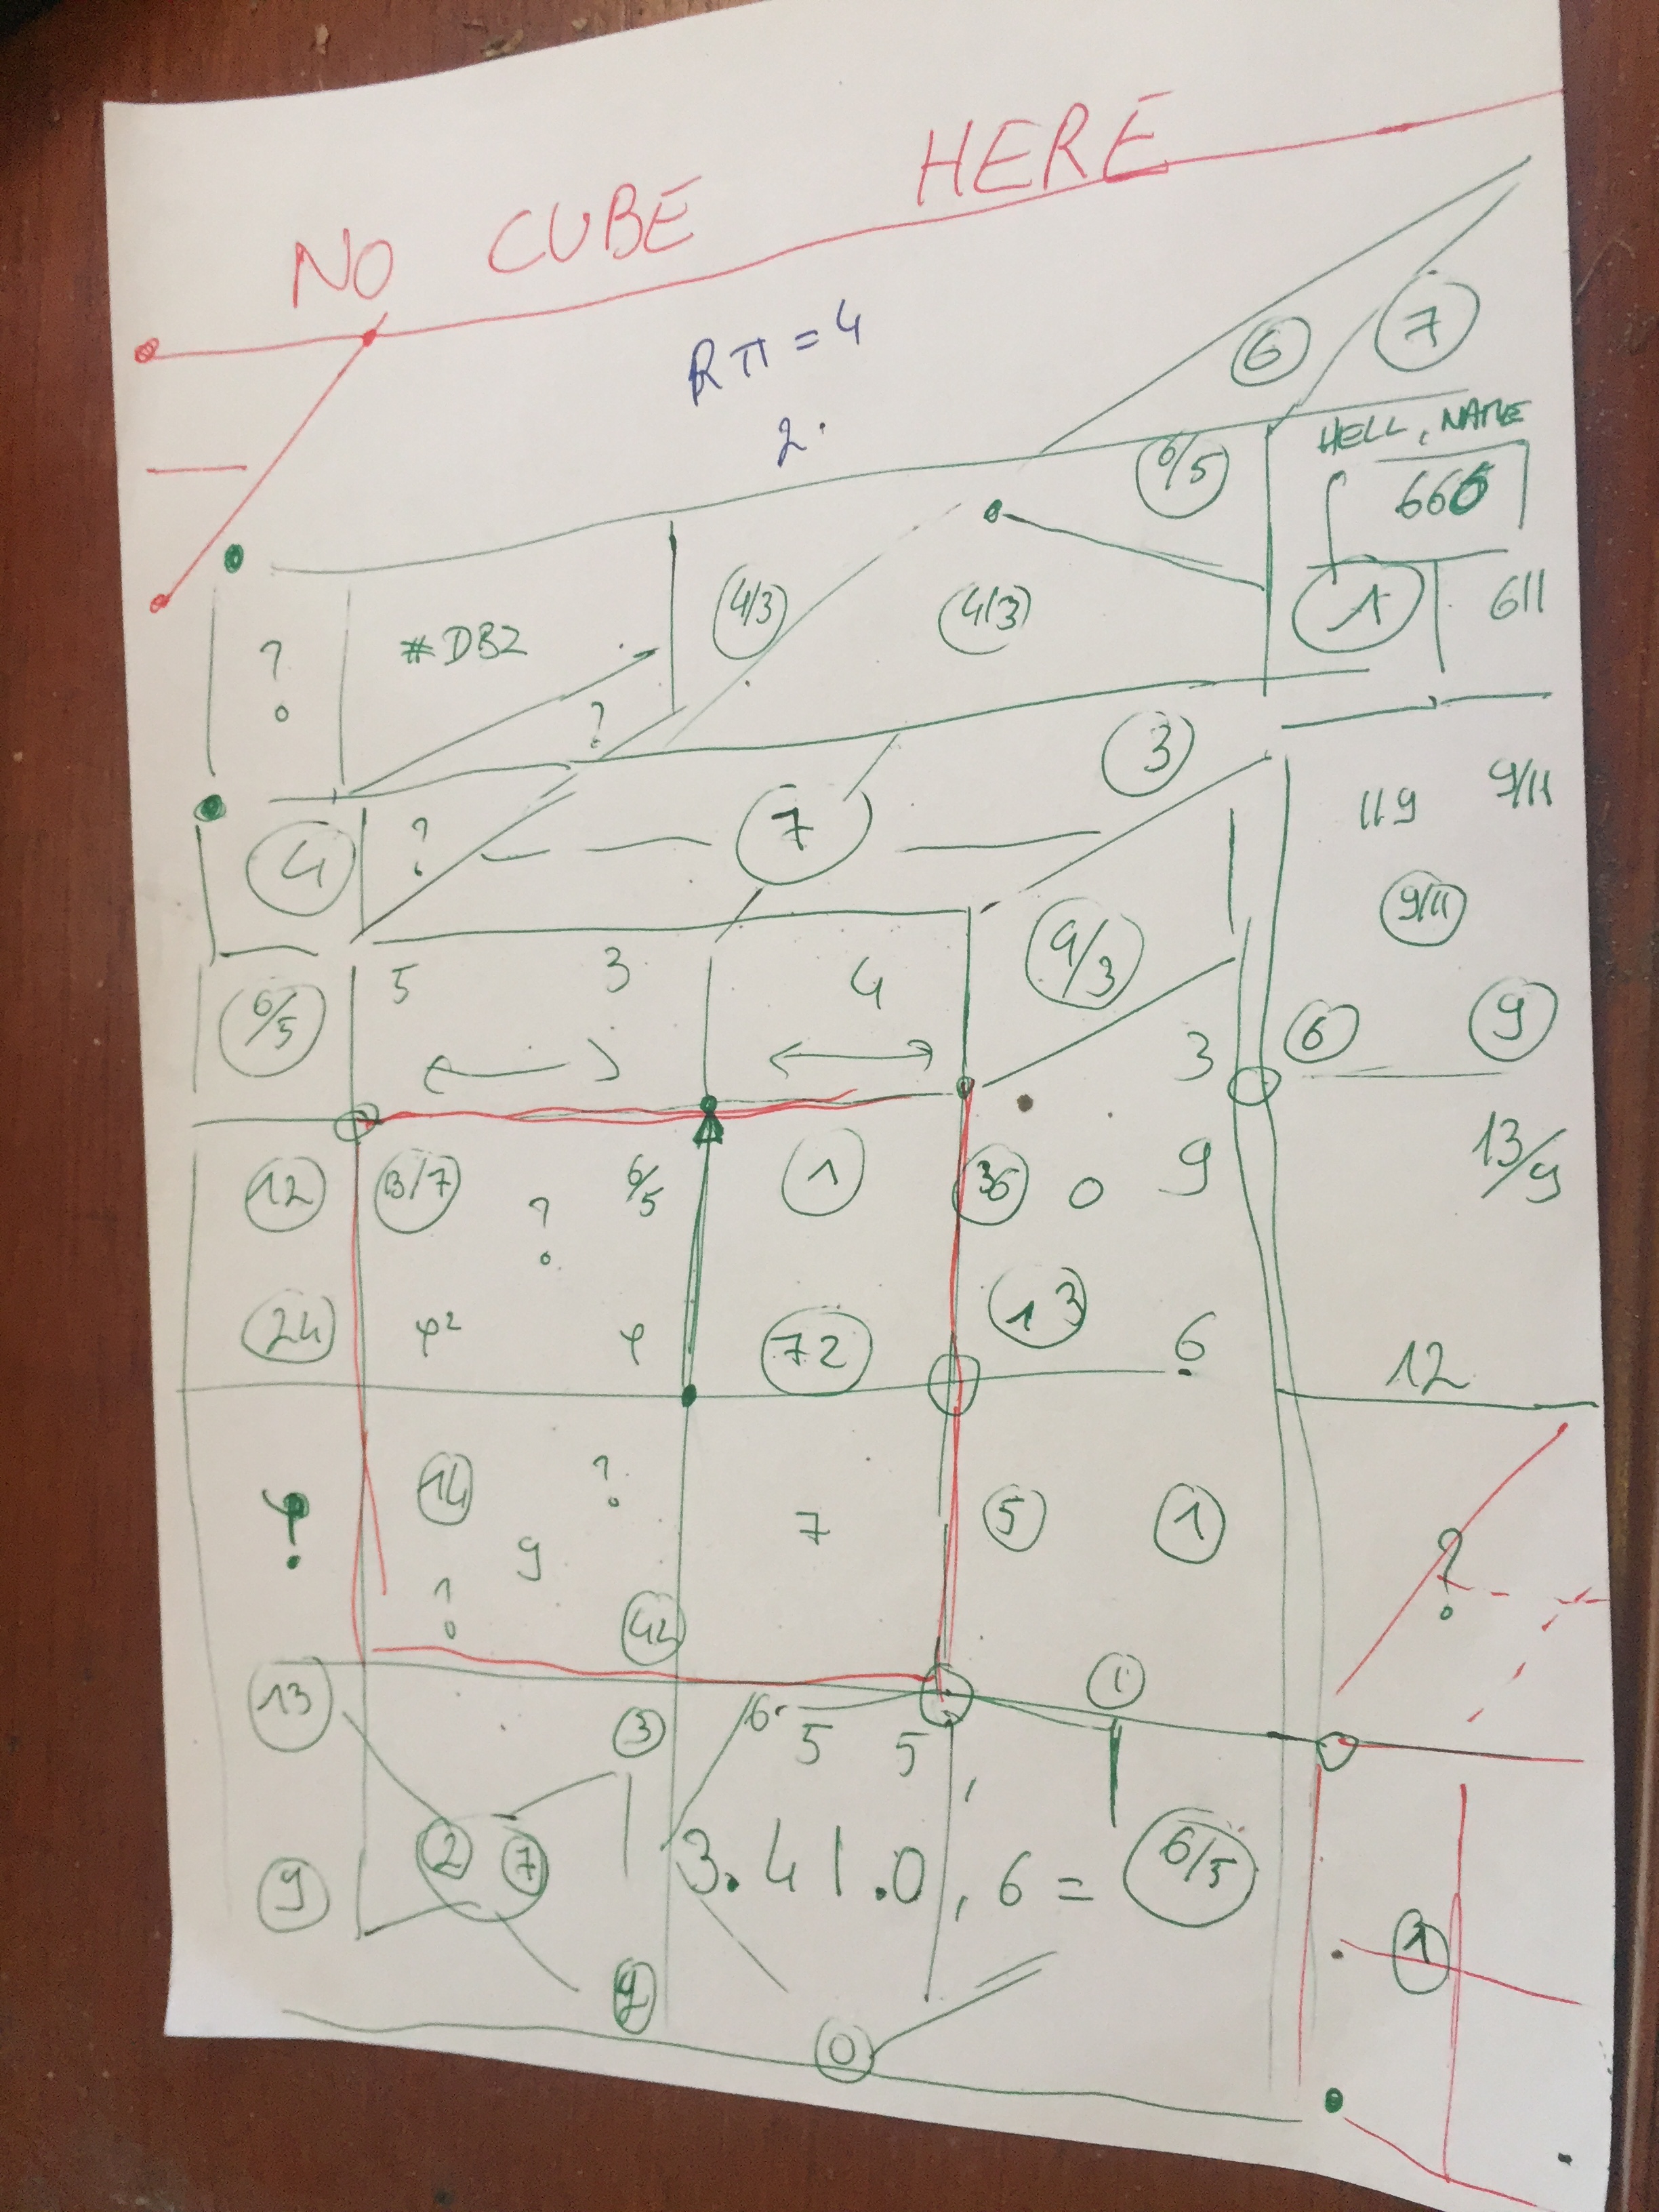 NO CUBE HERE
Rπ = 4
2.
6
7
HELL, NATRE
6/5
666
#DBZ
4/3
4/3
1
611
?
?
3
4
?
7
119
9/11
9/11
5
3
4
9/3
6/5
3
6
9
12
13/7
?
6/5
1
36
0
9
13/9
24
φ²
φ
72
13
6
12
φ
14
?
7
5
1
?
9
?
42
13
3
6.
5
5
1
2
7
3.41.0,6 = 6/5
9
1
0